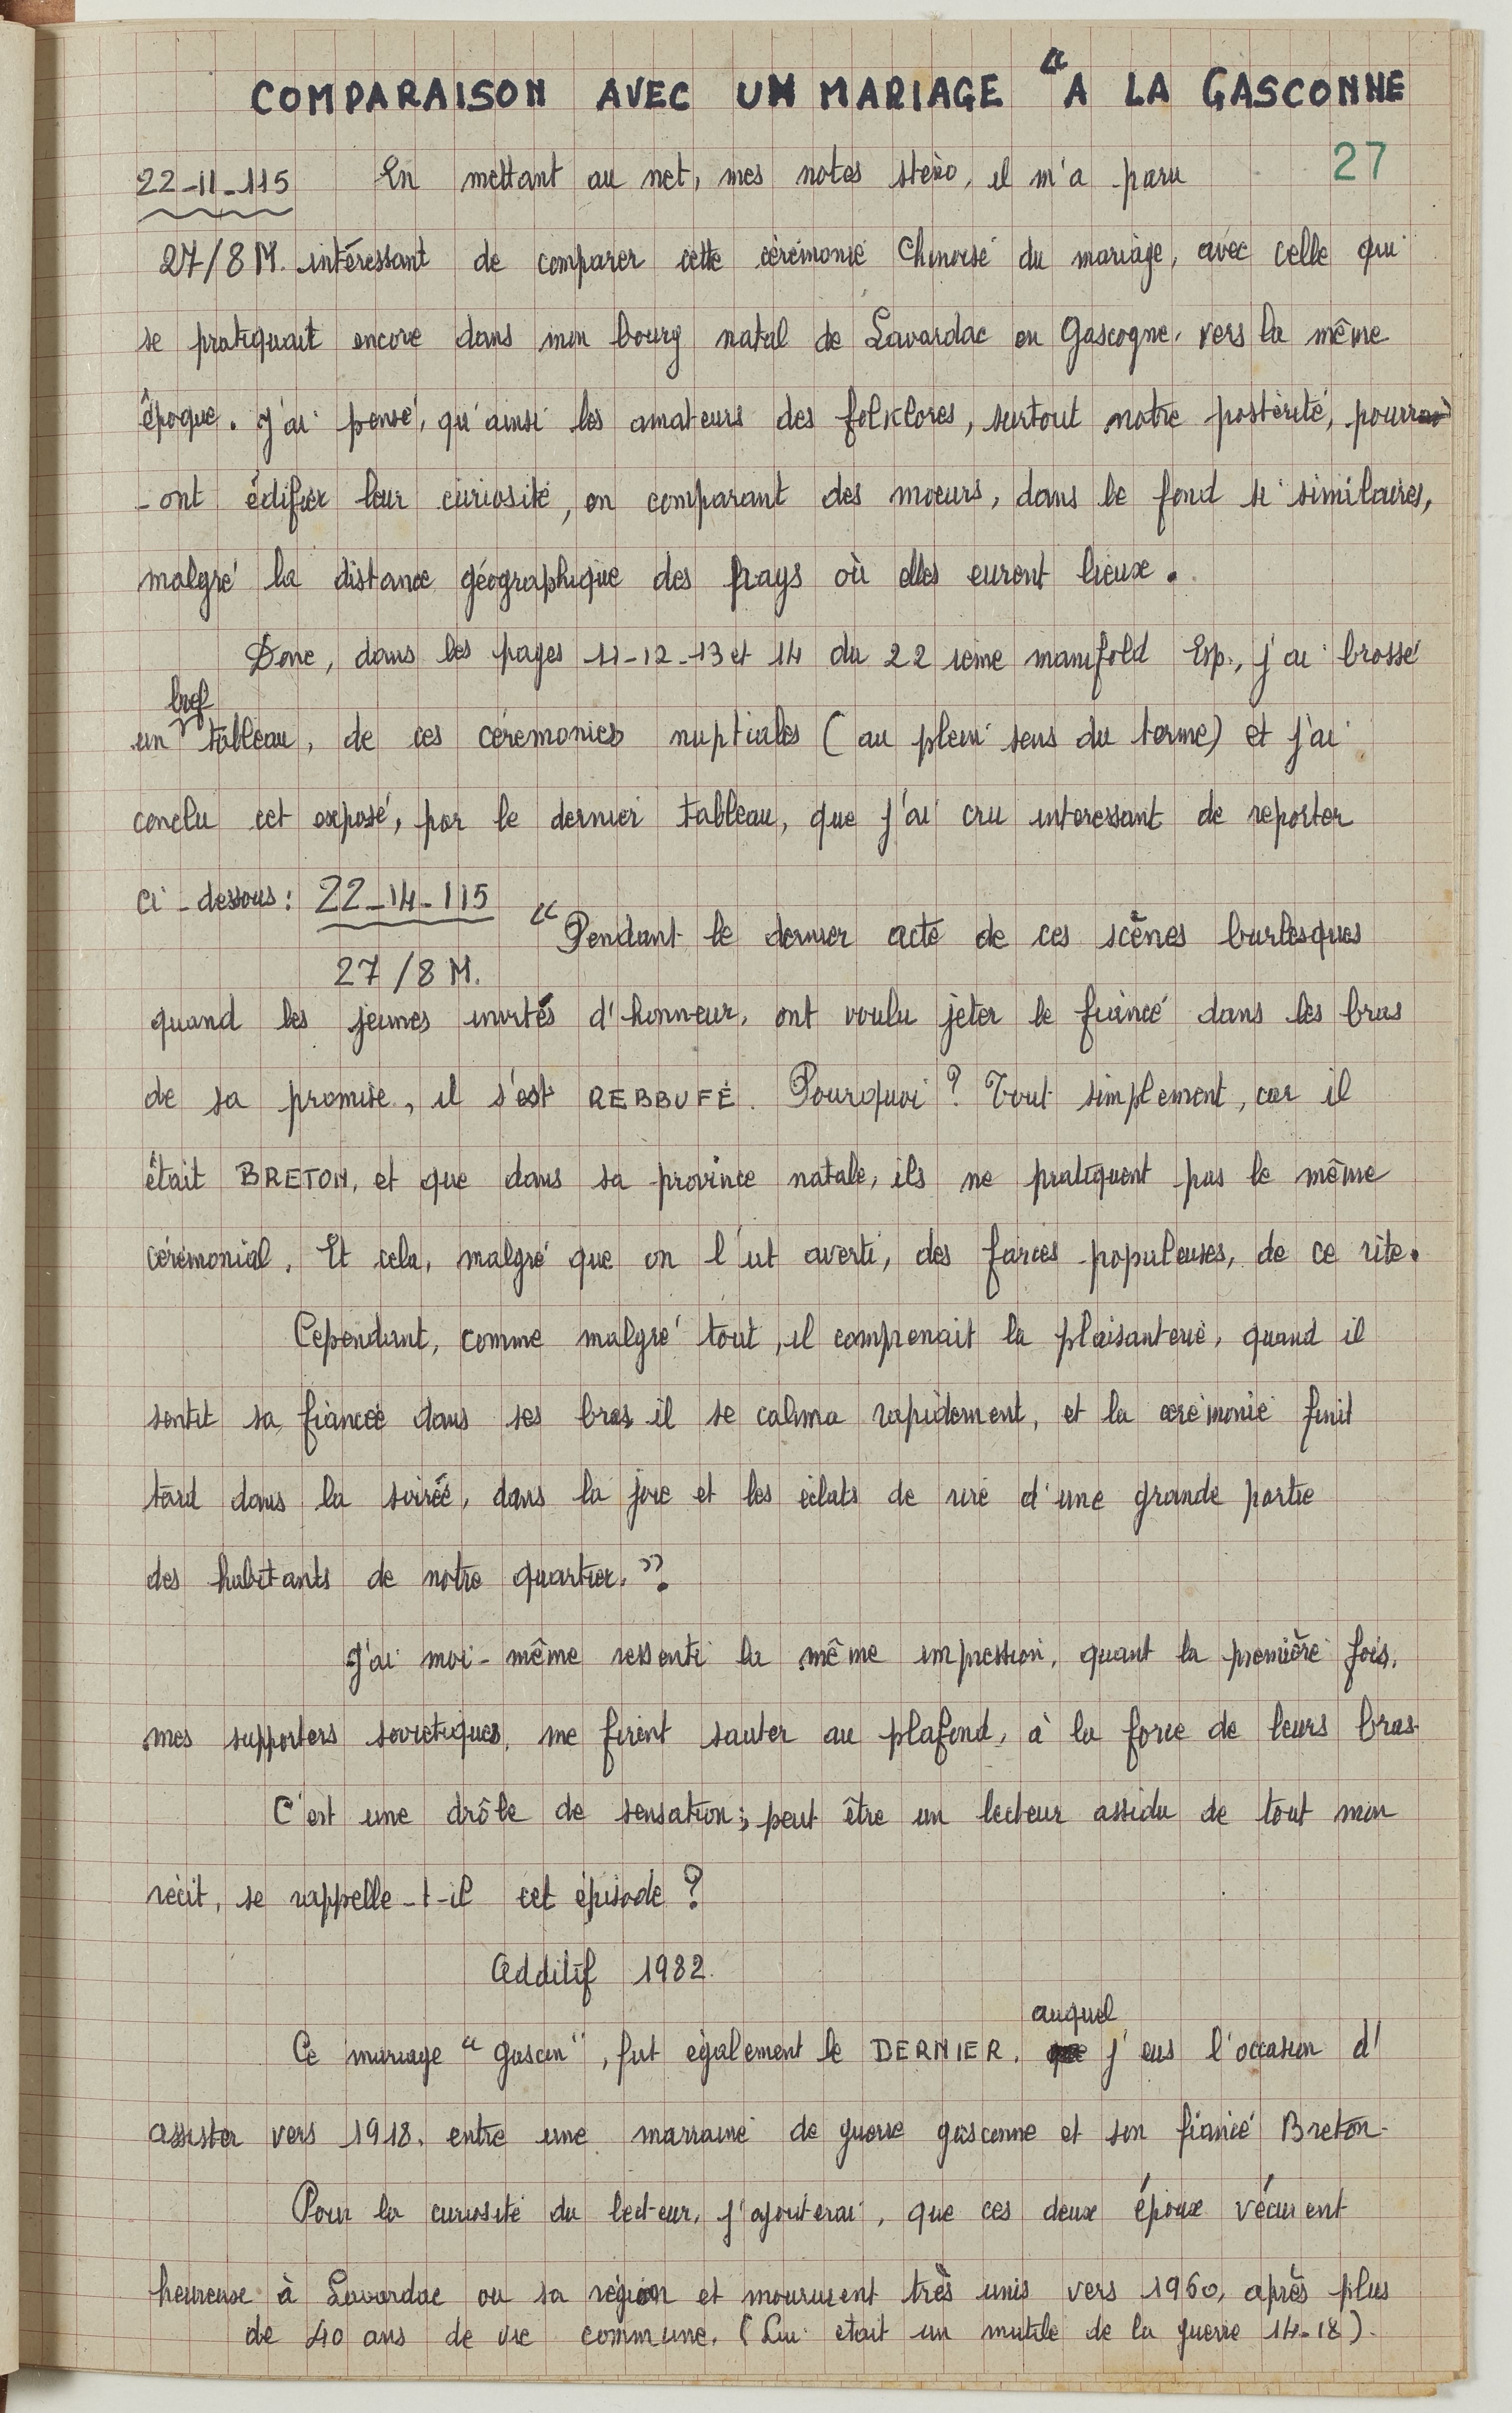 COMPARAISON AVEC UN MARIAGE "A LA GASCONNE
27
22-11-115 En mettant au net, mes notes sténo, il m'a paru
27/8 M. intéressant de comparer cette cérémonie Chinoise du mariage, avec celle qui
se pratiquait encore dans mon bourg natal de Lavardac en Gascogne, vers la même
époque. J'ai pensé, qu'ainsi les amateurs des folklores, surtout notre postérité, pourr
-ont édifier leur curiosité, en comparant des mœurs, dans le fond si similaires,
malgré la distance géographique des pays où elles eurent lieux.
Donc, dans les pages 11-12-13 et 14 du 22 ième manifold Esp., j'ai brossé
un bref tableau, de ces cérémonies nuptiales (au plein sens du terme) et j'ai
conclu cet exposé, par le dernier tableau, que j'ai cru interessant de reporter
ci-dessous: 22-14-115
"Pendant le dernier acte de ces scènes burlesques
27/8 M.
quand les jeunes invités d'honneur, ont voulu jeter le fiancé dans les bras
de sa promise, il s'est REBBUFÉ. Pourquoi? Tout simplement, car il
était BRETON, et que dans sa province natale, ils ne pratiquent pas le même
cérémonial. Et cela, malgré que on l'ut averti, des farces populeuses, de ce rite.
Cependant, comme malgré tout, il comprenait la plaisanterie, quand il
sentit sa fiancée dans ses bras il se calma rapidement, et la cérémonie finit
tard dans la soirée, dans la joie et les éclats de rire d'une grande partie
des habitants de notre quartier.".
J'ai moi-même ressenti la même impression, quant la première fois,
mes supporters soviétiques, me firent sauter au plafond, à la force de leurs bras.
C'est une drôle de sensation; peut être un lecteur assidu de tout mon
récit, se rappelle-t-il cet épisode?
Additif 1982.
Ce mariage "gascon", fut également le DERNIER, auquel j'eus l'occasion d'
assister vers 1918, entre une marraine de guerre gasconne et son fiancé Breton.
Pour la curiosité du lecteur, j'ajouterai, que ces deux époux vécurent
heureuse à Lavardac ou sa région et moururent très unis vers 1960, après plus
de 40 ans de vie commune. (Lui était un mutilé de la guerre 14-18).